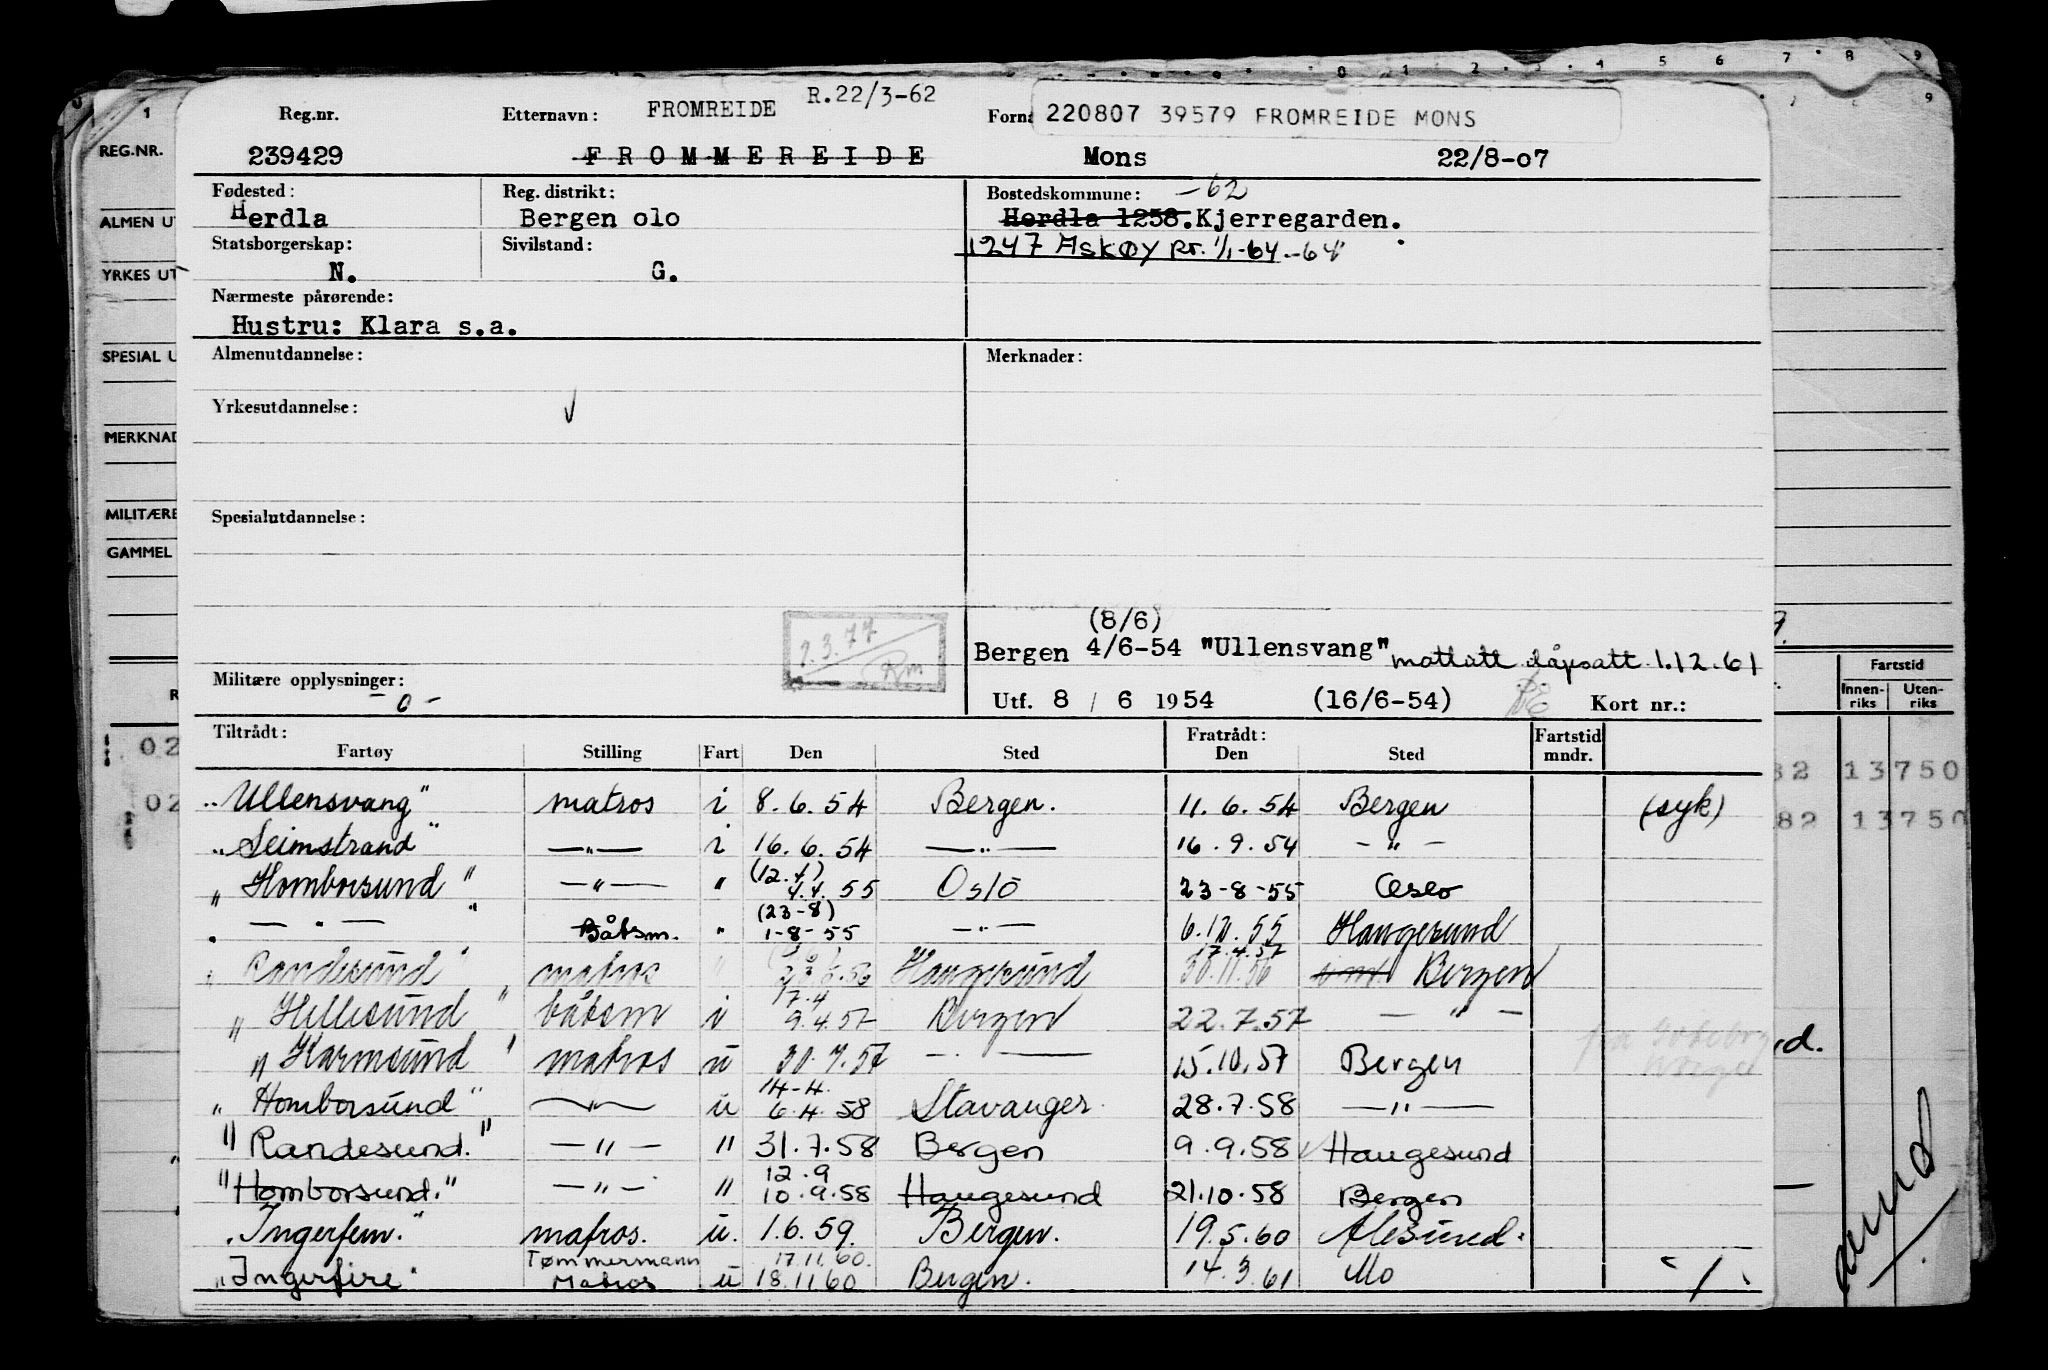 0 1 2 3 4 5 6 7 8 9
1 7 9
REG.NR.
ALMEN UT
YRKES UT
SPESIAL U
MERKNAD
MILITÆRE
GAMMEL
Reg.nr. Etternavn: FROMREIDE R.22/3-62 Forna 220807 39579 FROMREIDE MONS
239429 FROMMEREIDE Mons 22/8-07
Fødested: Reg. distrikt: Bostedskommune: -62
Herdla Bergen olo Herdla 1258. Kjerregarden.
Statsborgerskap: Sivilstand: 1247 Askøy Rr. 1/1-64 -64
N. G.
Nærmeste pårørende:
Hustru: Klara s.a.
Almenutdannelse: Merknader:
Yrkesutdannelse:
Spesialutdannelse:
(8/6)
Bergen 4/6-54 "Ullensvang" mottatt dåpsatt 1.12.61
2.3.77
Militære opplysninger: Utf. 8 / 6 1954 (16/6-54) Kort nr.:
- o -
Fartstid
Innen-riks Uten-riks
Tiltrådt: Fratrådt: Fartstid
Fartøy Stilling Fart Den Sted Den Sted mndr.
"Ullensvang" matros i 8.6.54 Bergen. 11.6.54 Bergen (syk)
"Seimstrand" —"— i 16.6.54 —"— 16.9.54 -"-
(12.4)
"Homborsund" —"— " 4.4.55 Oslo 23-8-55 Oslo
(23-8)
"—"—" Båtsm. " 1-8-55 —"— 6.12.55 Haugesund
17.4.57
"Randesund" matros " Haugesund 30.11.56 Bergen
17.4
"Hellesund" båtsm i 9.4.57 Bergen 22.7.57 —"—
"Karmsund" matros u 30.7.57 —"— 15.10.57 Bergen
14-4.
"Homborsund" —"— u 6.4.58 Stavanger 28.7.58 —"—
"Randesund." —"— " 31.7.58 Bergen 9.9.58 Haugesund
12.9
"Homborsund." —"— " 10.9.58 Haugesund 21.10.58 Bergen
"Ingerfem." matros. u. 1.6.59. Bergen. 19.5.60 Ålesund.
Tømmermann 17.11.60.
"Ingerfire" Matros u 18.11.60 Bergen. 14.3.61 Mo
02
02
82 13750
82 13750